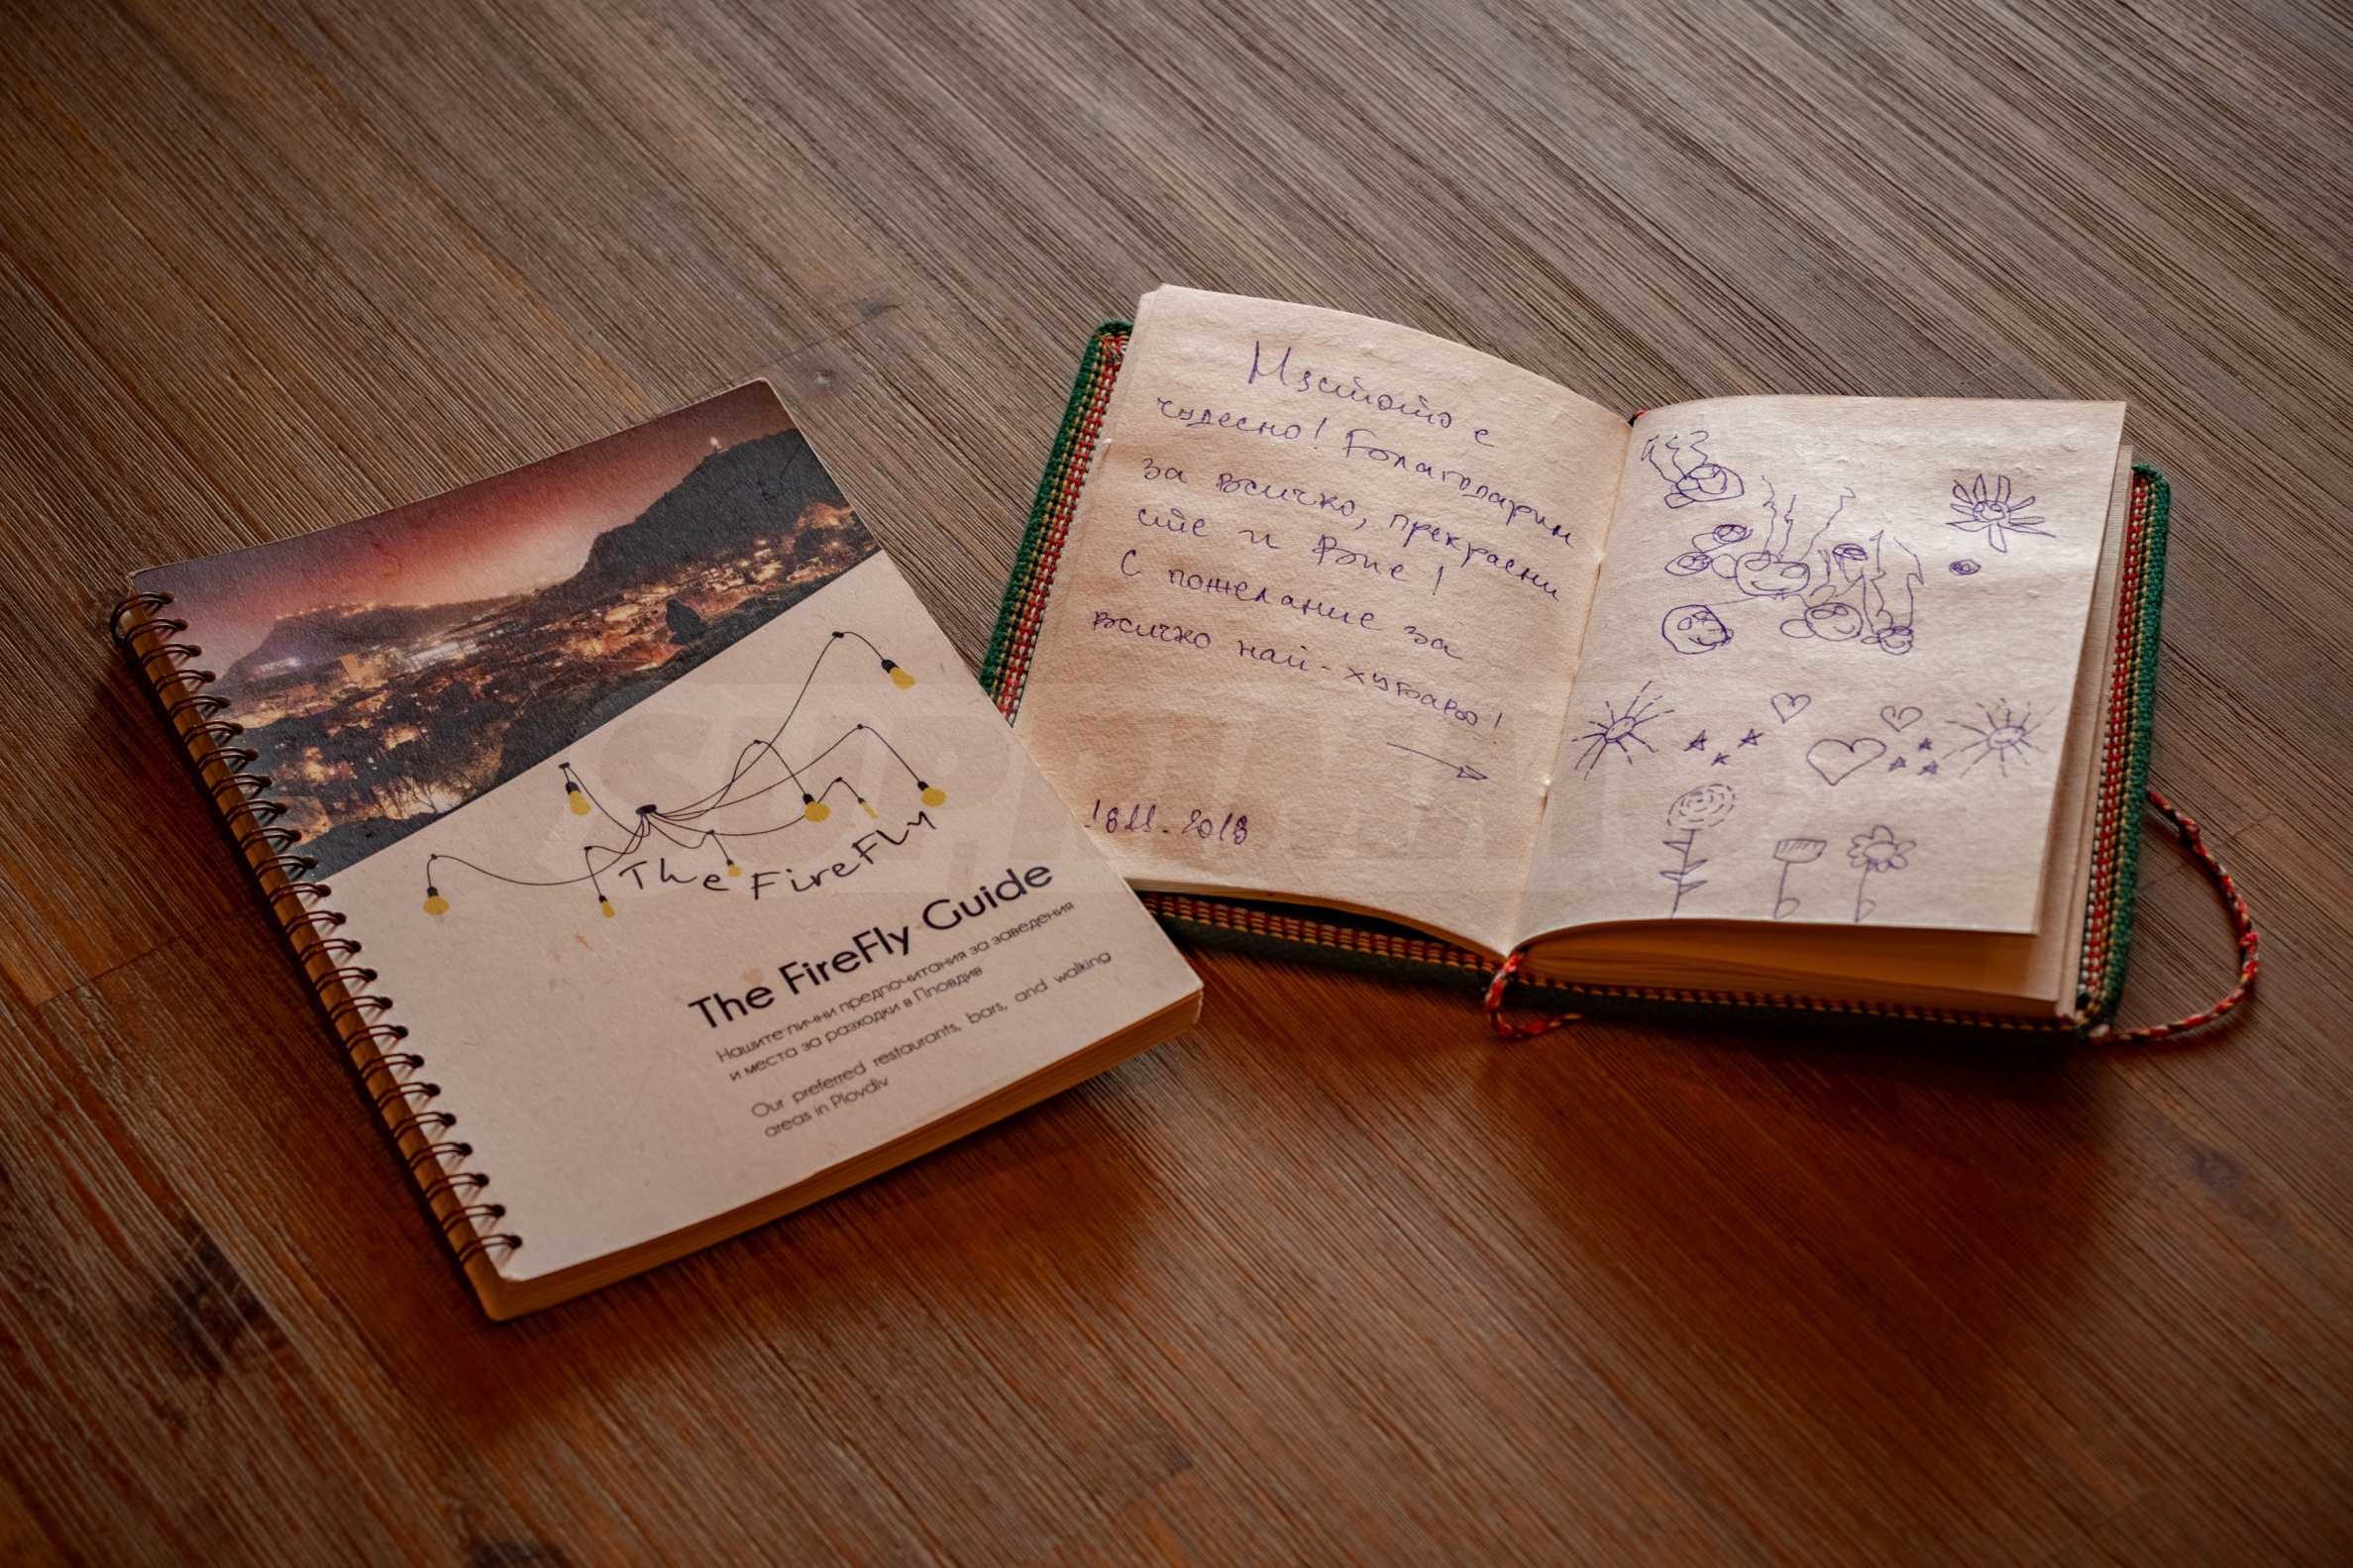 The FireFly
The FireFly Guide
Нашите лични предпочитания за заведения
и места за разходки в Пловдив
Our preferred restaurants, bars, and walking
areas in Plovdiv
Мястото е
чудесно! Благодарим
за всичко, прекрасни
сте и Вие!
С пожелание за
всичко най-хубаво!
18.11.2018